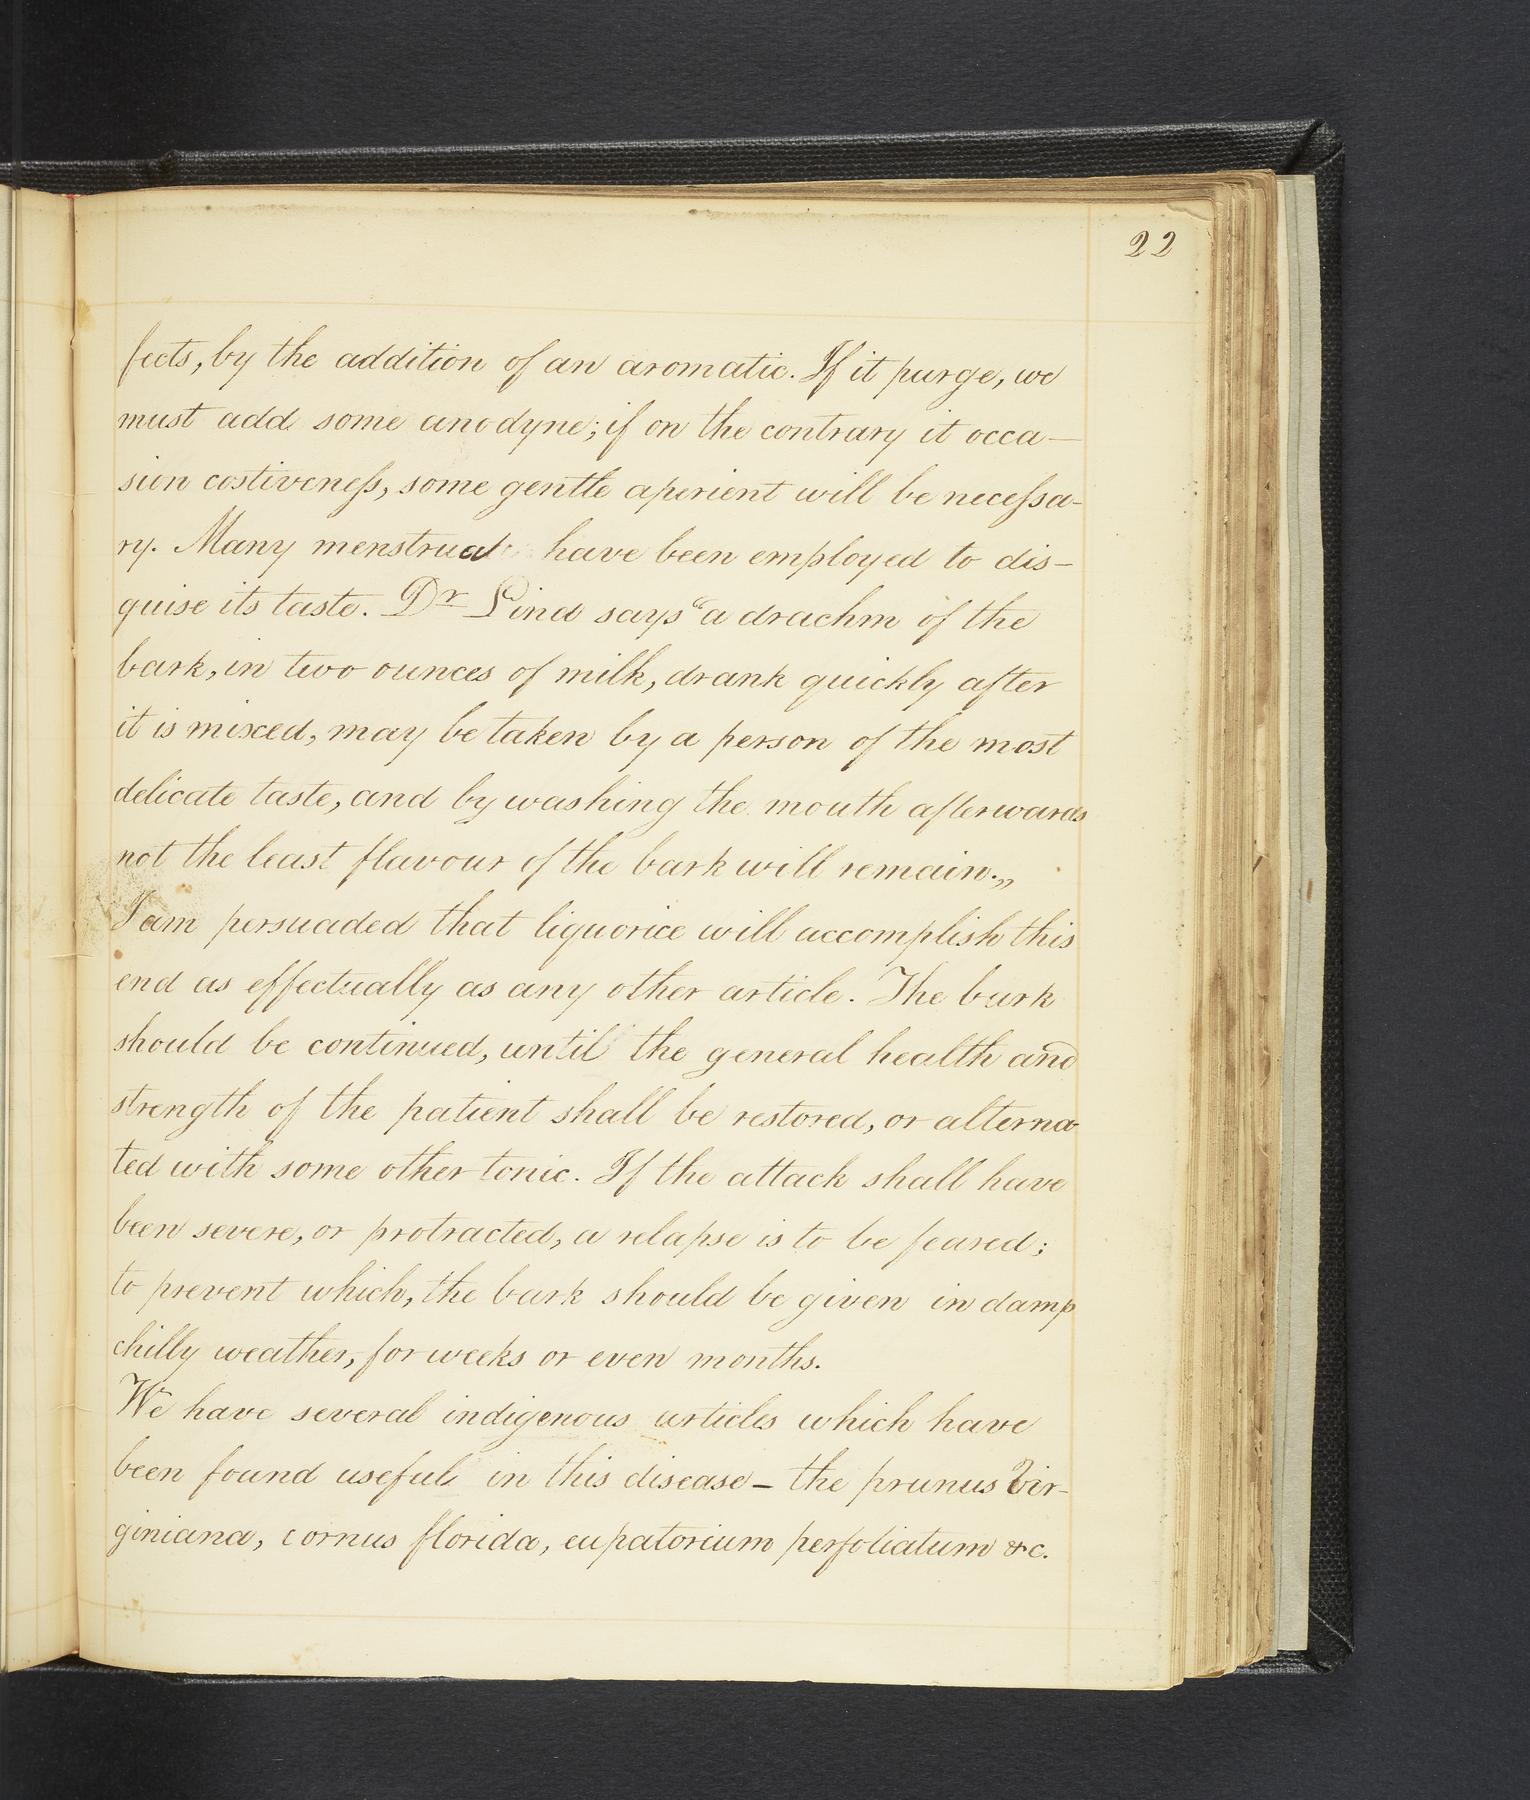 22
fects, by the addition of an aromatic. If it purge, we
must add some anodyne; if on the contrary it occa-
sion costiveneſs, some gentle aperient will be neceſsa-
ry. Many menstrua have been employed to dis-
guise its taste. Dr Lind says "a drachm of the
bark, in two ounces of milk, drank quickly after
it is mixed, may be taken by a person of the most
delicate taste, and by washing the mouth afterwards
not the least flavour of the bark will remain.„
I am persuaded that liquorice will accomplish this
end as effectually as any other article. The bark
should be continued, until the general health and
strength of the patient shall be restored, or alterna-
ted with some other tonic. If the attack shall have
been severe, or protracted, a relapse is to be feared;
to prevent which, the bark should be given in damp
chilly weather, for weeks or even months.
We have several indigenous articles which have
been found useful in this disease – the prunus Vir-
giniana, cornus florida, eupatorium perfoliatum &c.